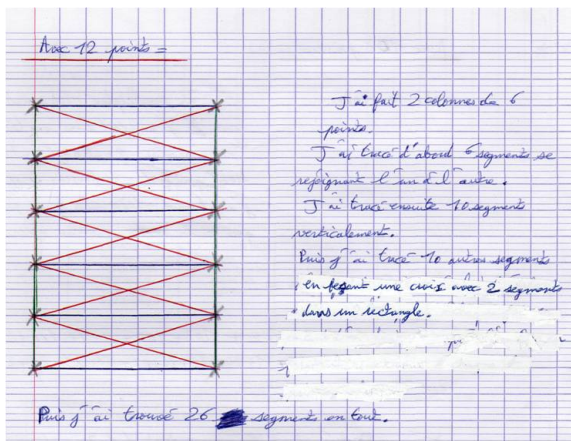 Avec 12 points =
J'ai fait 2 colonnes de 6
points.
J'ai tracé d'abord 6 segments se
rejoignant l'un à l'autre.
J'ai tracé ensuite 10 segments
verticalement.
Puis j'ai tracé 10 autres segments
en fesant une croix avec 2 segments
dans un rectangle.
Puis j'ai trouvé 26 segments en tout.